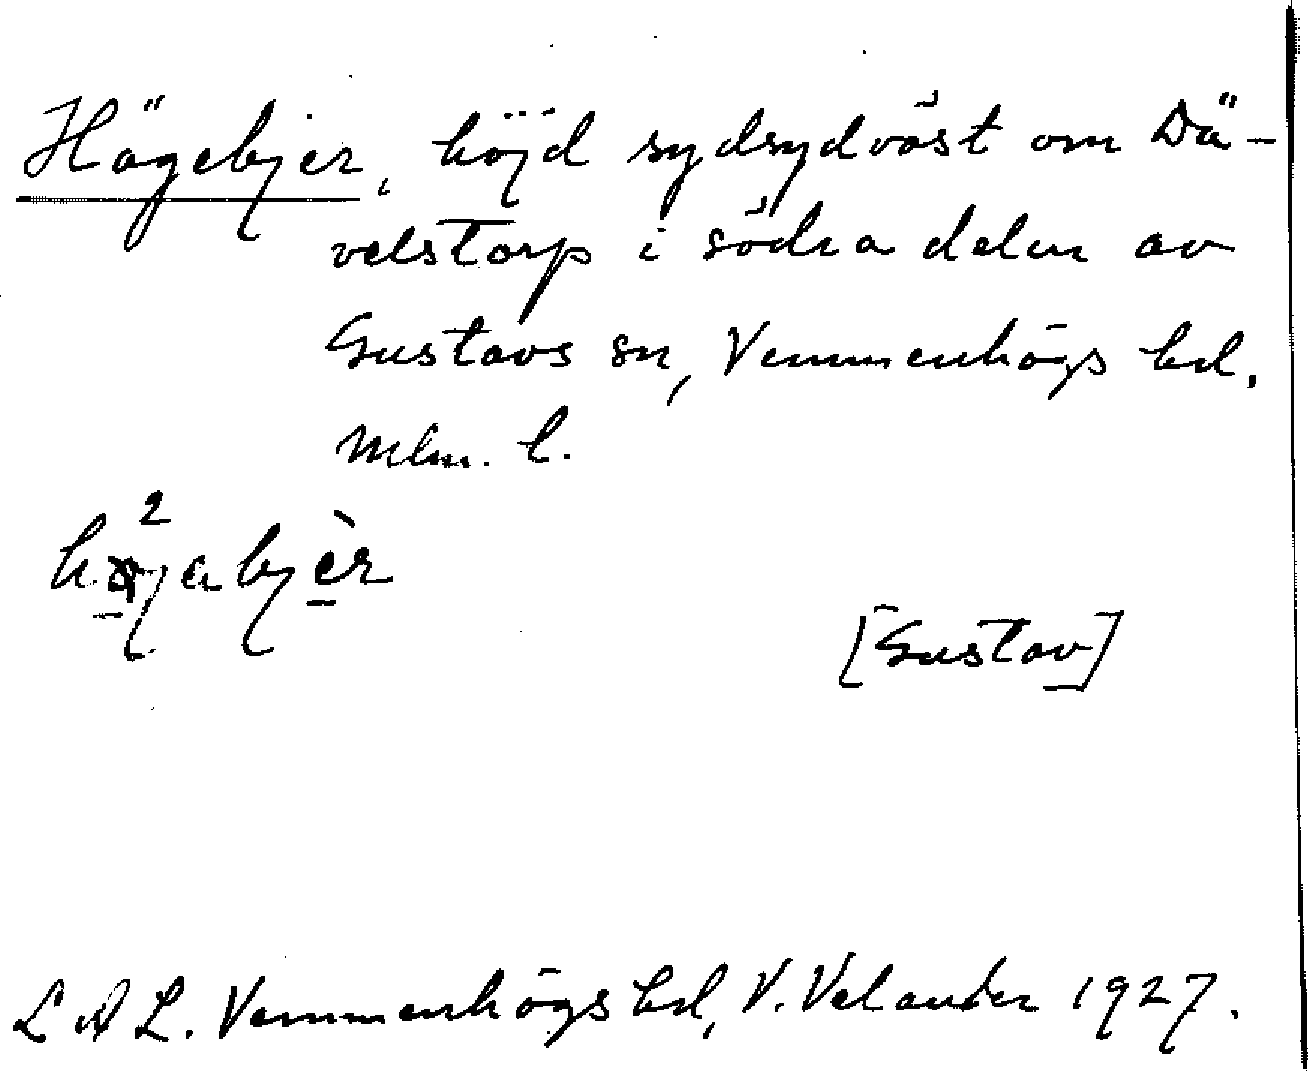 Hägebjer, höjd sydsydväst om Dä-
velstorp i södra delen av
Gustavs sn, Vemmenhögs hd.
Mlm. l.
[Gustav]
LAL. Vemmenhögs hd, V. Velander 1927.